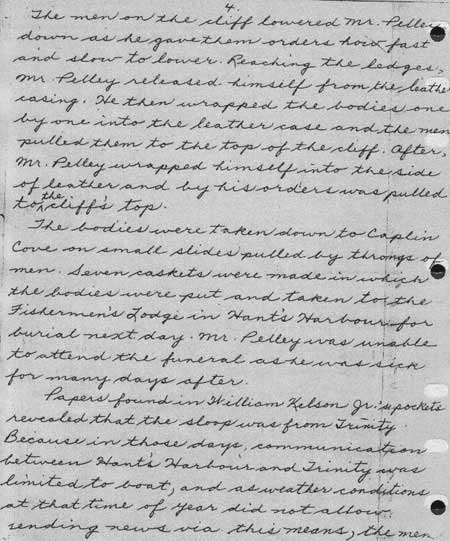 4.
The men on the cliff lowered Mr. Pelley
down as he gave them orders how fast
and slow to lower. Reaching the ledges,
Mr. Pelley released himself from the leather
casing. He then wrapped the bodies one
by one into the leather case and the men
pulled them to the top of the cliff. After,
Mr. Pelley wrapped himself into the side
of leather and by his orders was pulled
to the cliff's top.
The bodies were taken down to Caplin
Cove on small slides pulled by throngs of
men. Seven caskets were made in which
the bodies were put and taken to the
Fishermen's Lodge in Hant's Harbour for
burial next day. Mr. Pelley was unable
to attend the funeral as he was sick
for many days after.
Papers found in William Kelson Jr.'s pockets
revealed that the sloop was from Trinity.
Because in those days, communication
between Hant's Harbour and Trinity was
limited to boat, and as weather conditions
at that time of year did not allow
sending news via this means, the men